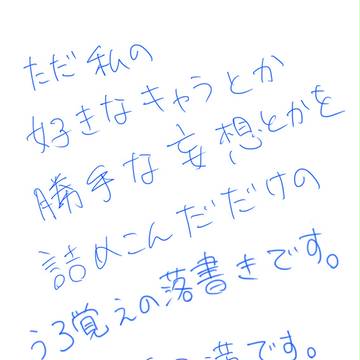 ただ私の
好きなキャラとか
勝手な妄想とかを
詰めこんだだけの
うろ覚えの落書きです。
満です。